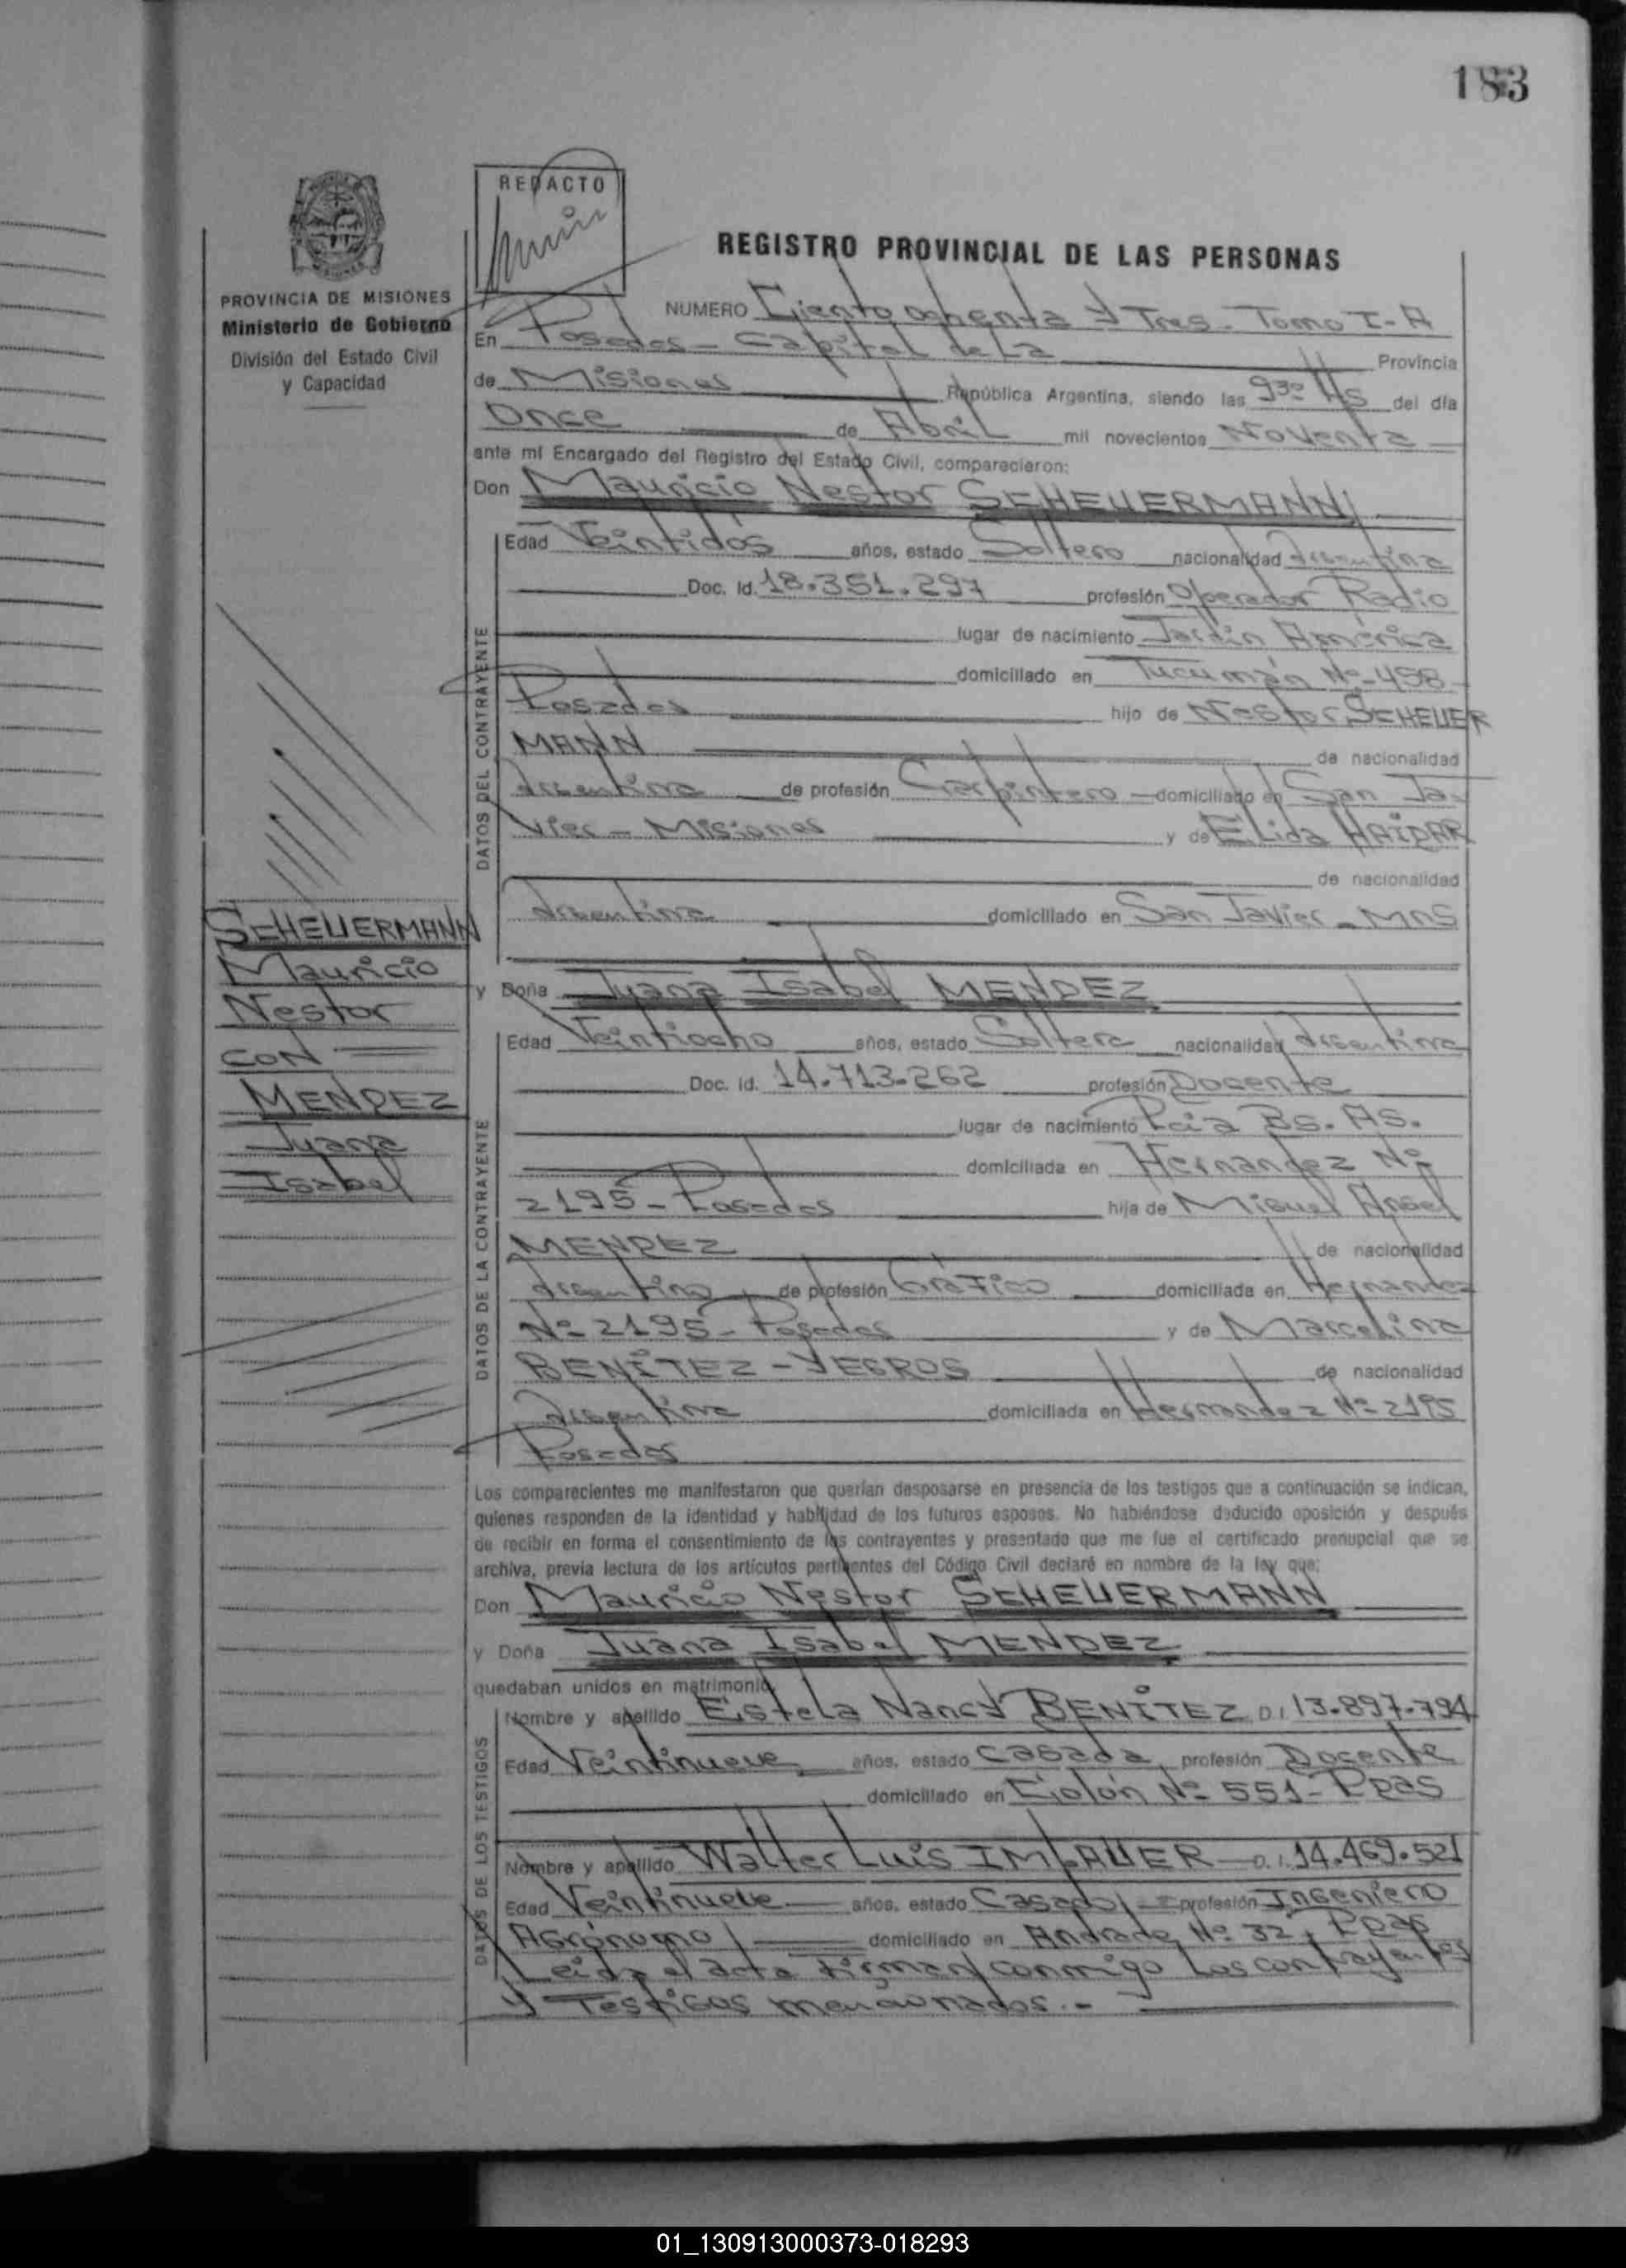 183
REDACTO
REGISTRO PROVINCIAL DE LAS PERSONAS
PROVINCIA DE MISIONES
Ministerio de Gobierno
División del Estado Civil
y Capacidad
NUMERO Ciento ochenta y Tres - Tomo I-A
En Posadas - Capital de La Provincia
de Misiones República Argentina, siendo las 9 30 Hs del día
Once de Abril mil novecientos Noventa
ante mí Encargado del Registro del Estado Civil, comparecieron:
Don Mauricio Nestor SCHEUERMANN
DATOS DEL CONTRAYENTE
Edad Veintidós años, estado Soltero nacionalidad Argentina
Doc. Id. 18.351.297 profesión Operador Radio
lugar de nacimiento Jardín América
domiciliado en Tucumán Nº 458
Posadas hijo de Nestor SCHEUER
MANN de nacionalidad
Argentina de profesión Carpintero - domiciliado en San Ja-
vier - Misiones y de Elida HAIDAR
de nacionalidad
Argentina domiciliado en San Javier - Mns
SCHEUERMANN
Mauricio
Nestor
CON
MENDEZ
Juana
Isabel
y Doña Juana Isabel MENDEZ
DATOS DE LA CONTRAYENTE
Edad Veintiocho años, estado Soltera nacionalidad Argentina
Doc. Id. 14.713.262 profesión Docente
lugar de nacimiento Pcia Bs. As.
domiciliada en Hernandez Nº
2195 - Posadas hija de Miguel Angel
MENDEZ de nacionalidad
Argentina de profesión Gráfico domiciliada en Hernandez
Nº 2195 - Posadas y de Marcelina
BENÍTEZ - YEGROS de nacionalidad
Argentina domiciliada en Hernandez Nº 2195
Posadas
Los comparecientes me manifestaron que querían desposarse en presencia de los testigos que a continuación se indican,
quienes responden de la identidad y habilidad de los futuros esposos. No habiéndose deducido oposición y después
de recibir en forma el consentimiento de los contrayentes y presentado que me fue el certificado prenupcial que se
archiva, previa lectura de los artículos pertinentes del Código Civil declaré en nombre de la ley que:
Don Mauricio Nestor SCHEUERMANN
y Doña Juana Isabel MENDEZ
quedaban unidos en matrimonio
DATOS DE LOS TESTIGOS
Nombre y apellido Estela Nancy BENÍTEZ D.I 13.897.794
Edad Veintinueve años, estado Casada profesión Docente
domiciliado en Colón Nº 551 - Ppas
Nombre y apellido Walter Luis IMLAUER D.I. 14.469.521
Edad Veintinueve años, estado Casado profesión Ingeniero
Agrónomo domiciliado en Andrade Nº 32, Ppas
Leida el acta Firman conmigo Los contrayentes
y Testigos mencionados.-
01_130913000373-018293